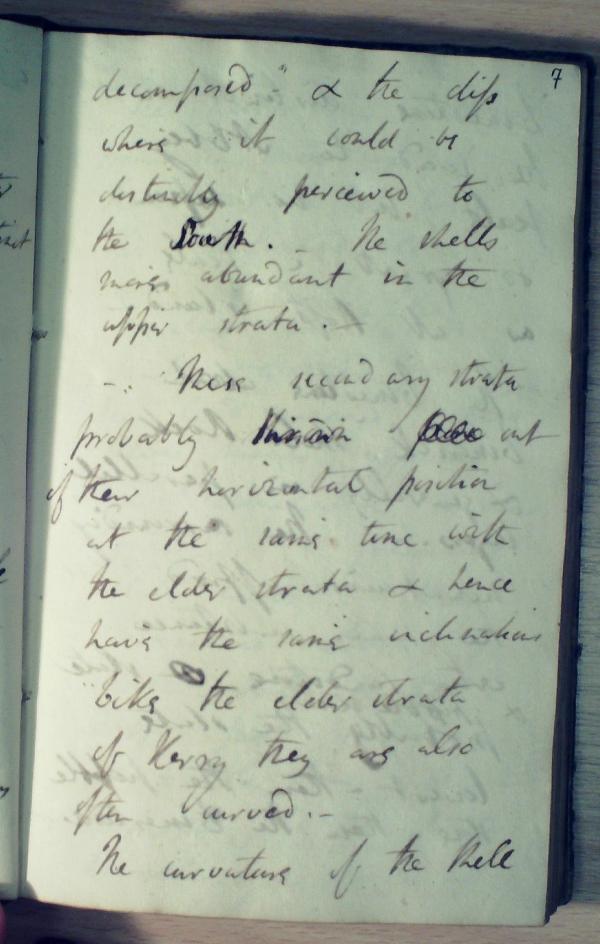 7
decomposed - " & the dip
where it could be
distinctly perceived to
the South. - The shells
more abundant in the
upper strata. -
-: These secondary strata
probably thrown out
of their horizontal position
at the same time with
the elder strata & hence
have the same inclinations
like the elder strata
of Kerry they are also
often curved. -
The curvature of the